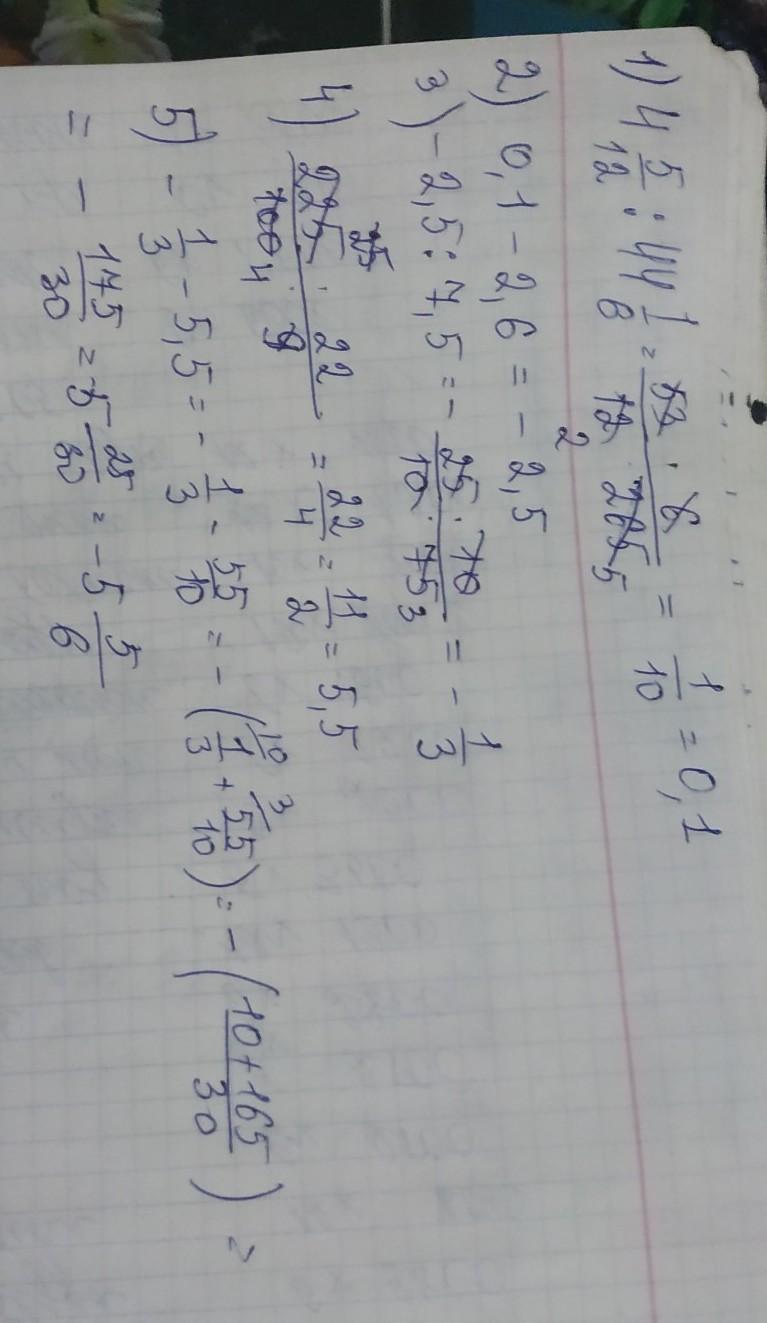 1) 4 5/12 : 44 1/6 = 53/12 · 6/265 = 1/10 = 0,1
2) 0,1 - 2,6 = -2,5
3) -2,5 : 7,5 = - 25/10 · 10/75 = - 1/3
4) 225/100 · 22/9 = 22/4 = 11/2 = 5,5
5) - 1/3 - 5,5 = - 1/3 - 55/10 = - ( 1/3 + 55/10 ) = - ( 10+165/30 ) =
= - 175/30 = 5 25/30 = -5 5/6